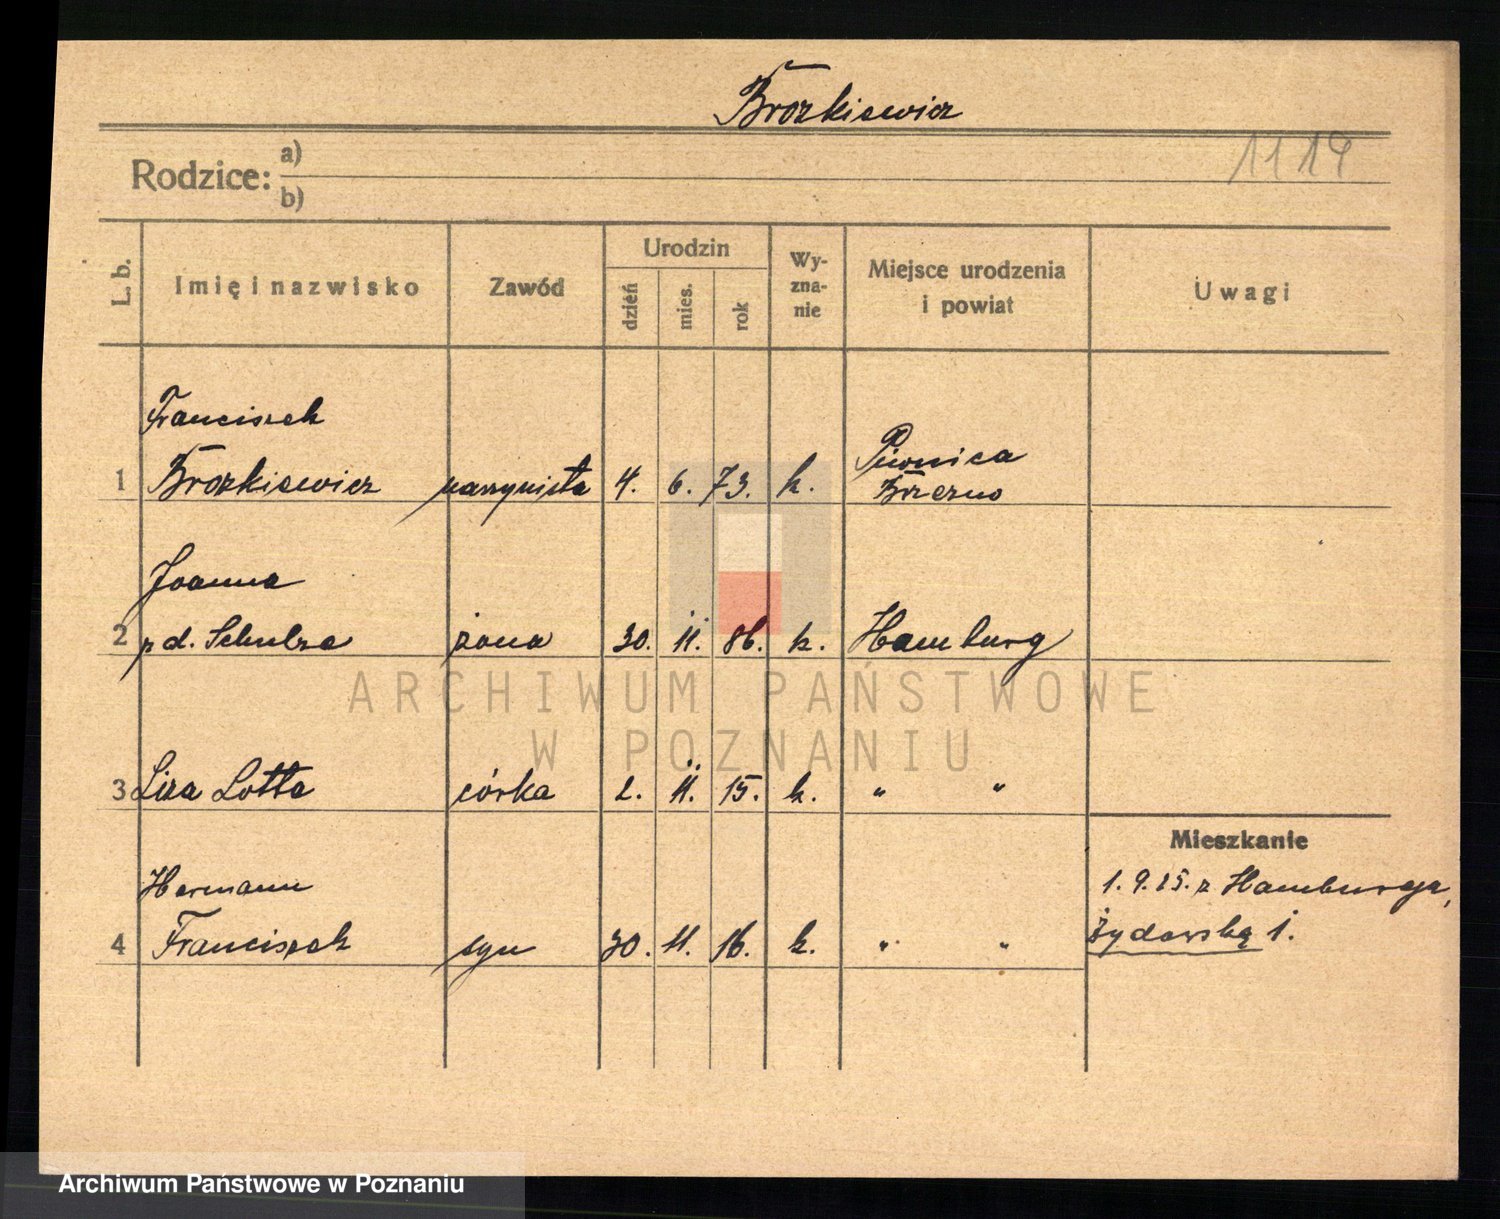 Brozkiewicz
1119
Rodzice: a)
b)
L. b.
Imię i nazwisko
Zawód
Urodzin
dzień
mies.
rok
Wy-
zna-
nie
Miejsce urodzenia
i powiat
Uwagi
Franciszek
1 Brozkiewicz maszynista 4. 6. 73. k. Piwnica
Brzezno
Joanna
2 p d. Schulza żona 30. 11. 86. k. Hamburg
3 Liza Lotta córka 2. 11. 15. k. " "
Hermann
4 Franciszek syn 30. 11. 16. k. " "
Mieszkanie
1. 9. 25. z Hamburga,
Żydowska 1.
ARCHIWUM PAŃSTWOWE
W POZNANIU
Archiwum Państwowe w Poznaniu